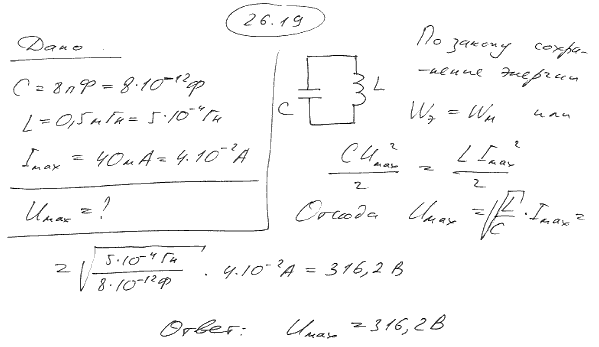 26.19
Дано
C = 8пФ = 8·10⁻¹²Ф
L = 0,5мГн = 5·10⁻⁴Гн
I_max = 40мА = 4·10⁻²А
U_max = ?
C
L
По закону сохра-
-нение энергии
W_э = W_м или
CU_max²/2 = LI_max²/2
Отсюда U_max = √(L/C) · I_max =
= √(5·10⁻⁴Гн / 8·10⁻¹²Ф) · 4·10⁻²А = 316,2В
Ответ: U_max = 316,2В